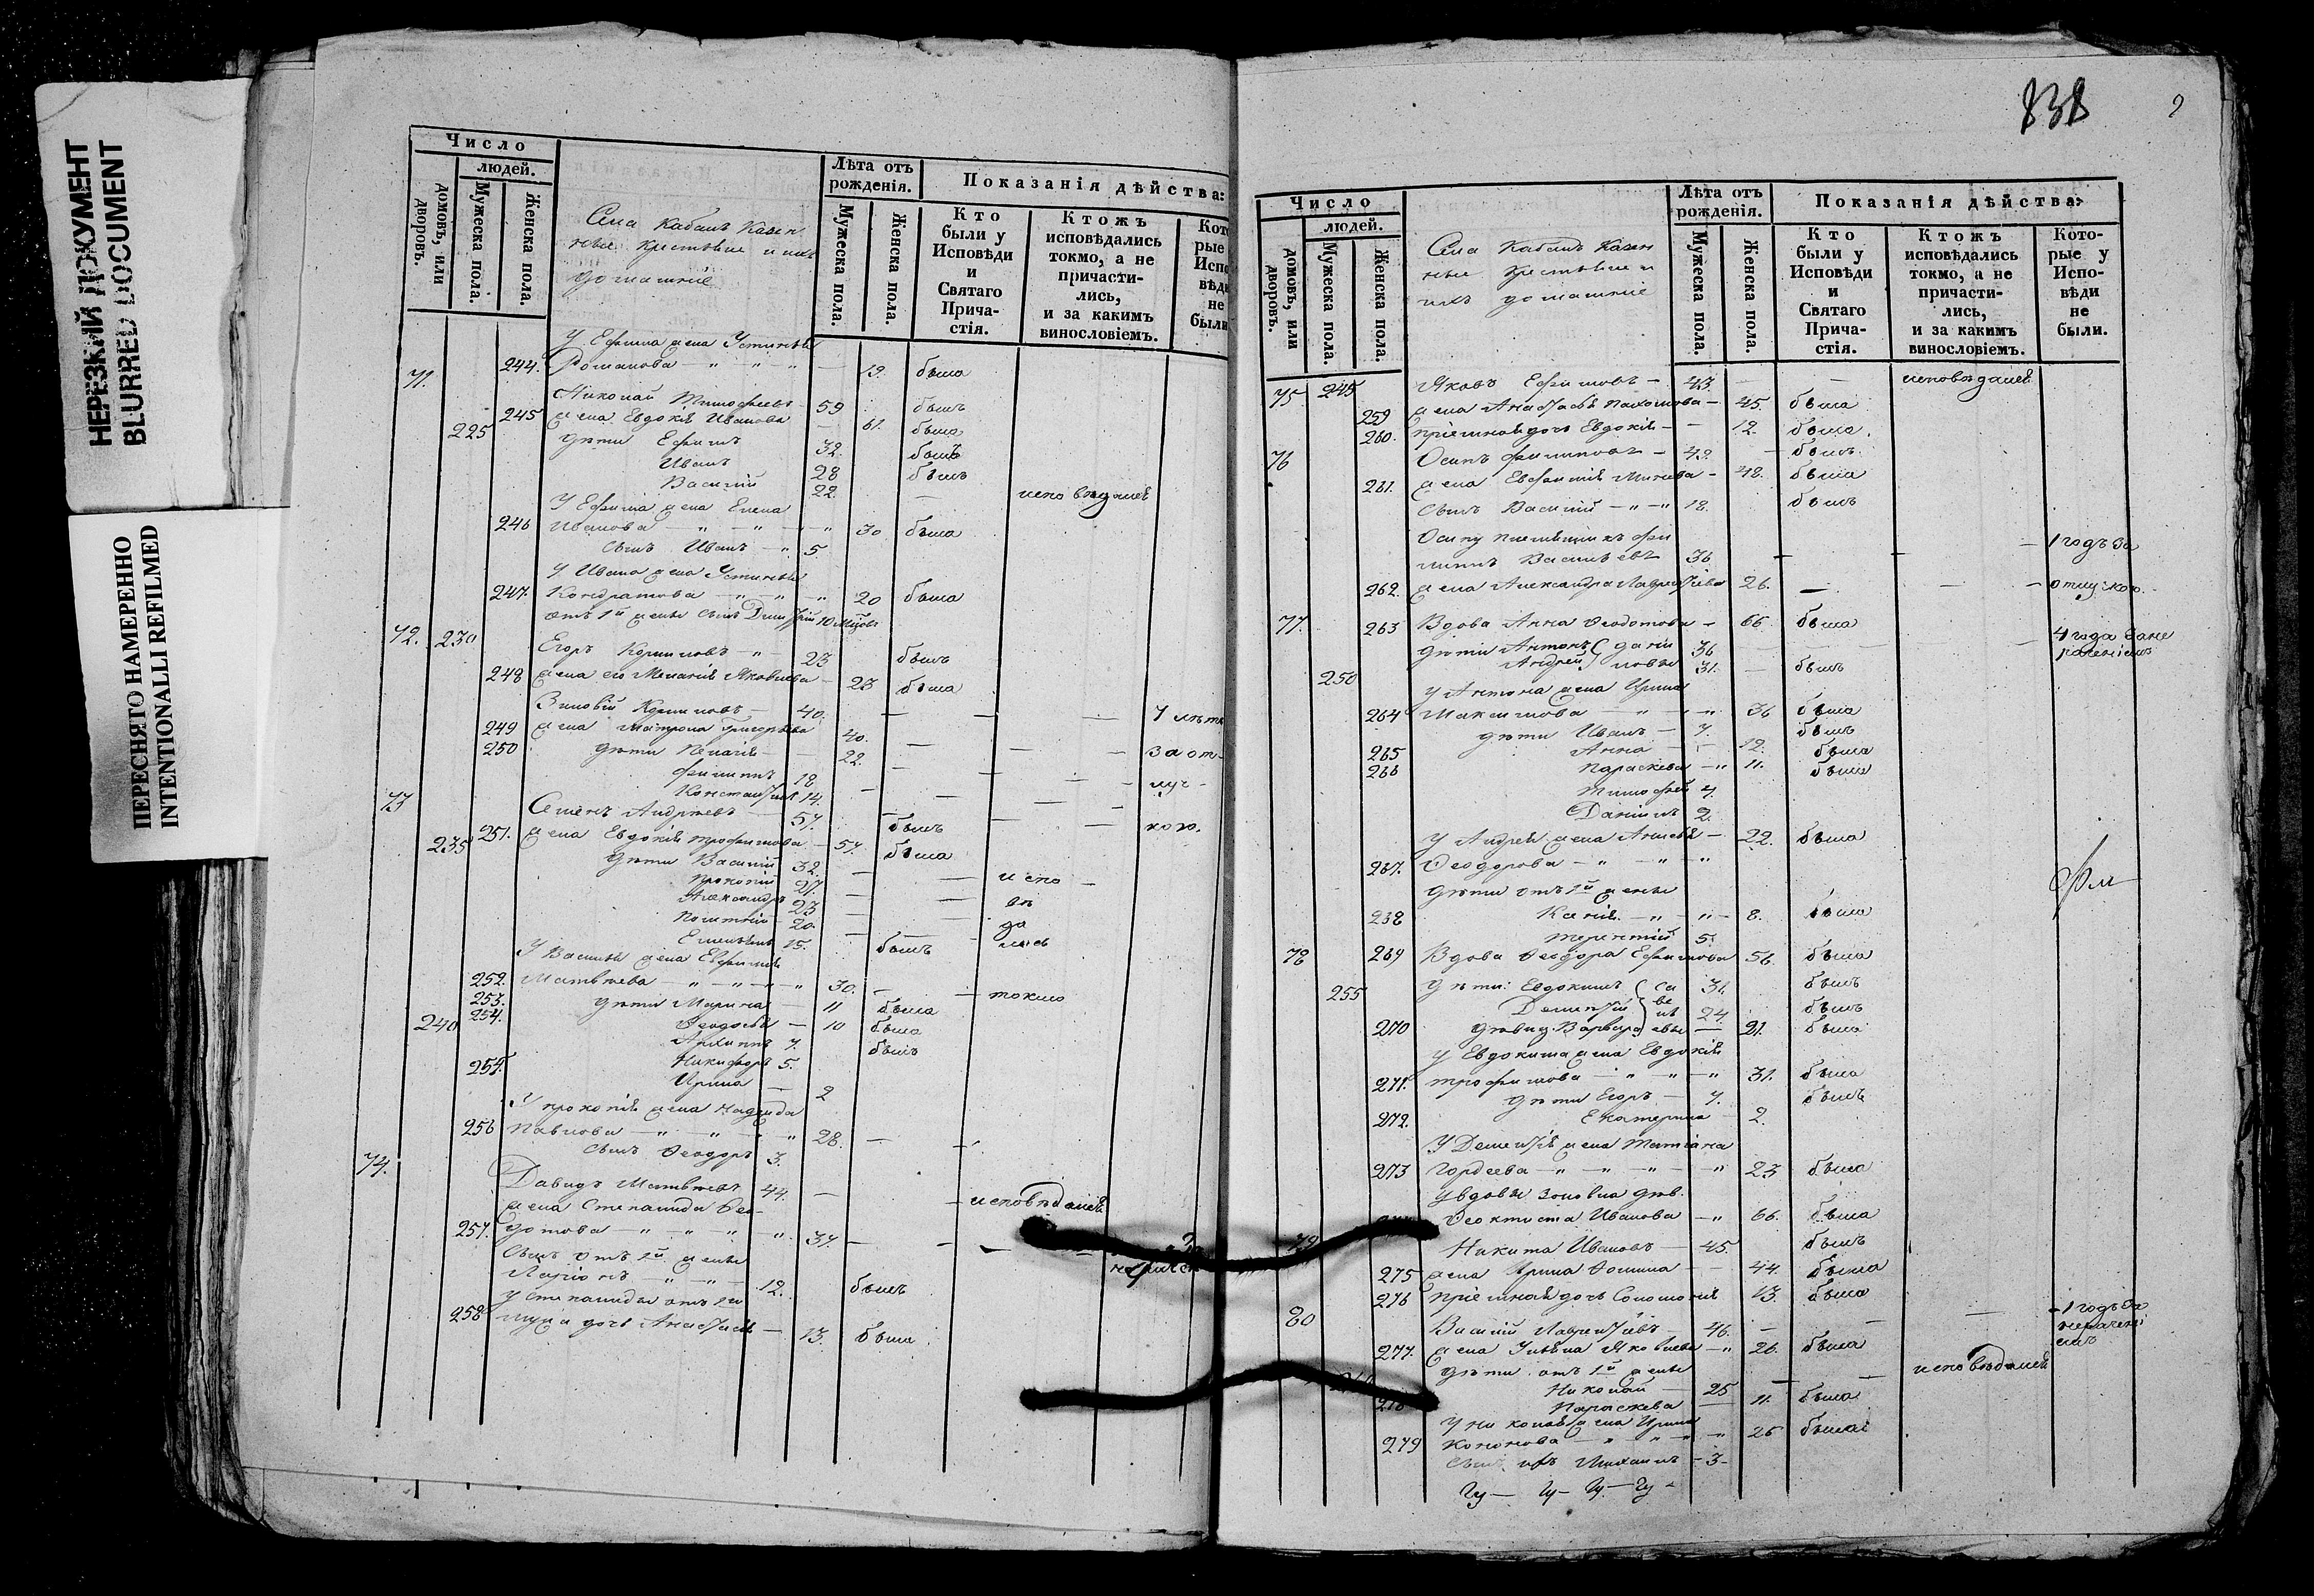 НЕРЕЗКИЙ ДОКУМЕНТ
BLURRED DOCUMENT
ПЕРЕСНЯТО НАМЕРЕННО
INTENTIONALLI REFILMED
Число
людей.
домовъ, или дворовъ.
Мужеска пола.
Женска пола.
Села Кабанъ Казен
ные крестьяне и ихъ
домашніе
Лѣта отъ рожденія.
Мужеска пола.
Женска пола.
Показанія дѣйства:
Кто были у Исповѣди и Святаго Прича-стія.
Ктожъ исповѣдались токмо, а не причасти-лись, и за какимъ винословіемъ.
Кото рые Испо вѣди не были
У Ефима жена Устинья
244. Романова — " — " — " — 19. была
71. Николай Тимофеевъ 59 былъ
245 жена Евдокія Иванова — 61. была
225 дѣти Ефимъ 32. былъ
Иванъ 28 былъ
Василій 22. — исповѣдался
У Ефима жена Елена
246 Иванова — " — " — " 30 была
сынъ Иванъ — " 5
У Ивана жена Устинья
247. Кондратова — " — " — " 20 была
отъ 1й жены сынъ Димитрій 10 мѣсяц
72. 230 Егоръ Кориловъ — " — 23 былъ
248 жена его Меланія Яковлева — 23 была
Зиновій Кориловъ — 40. — — — 7 лѣтъ
249 жена Матрона Григорьева 40. — — —
250 дѣти Пелагія — — 22. — — — за от-
Филиппъ 18 — — — луч-
Константинъ 14. — — — кою.
73 Семенъ Андреевъ — 57. былъ
235 251. жена Евдокія Трофимова — 57. была
дѣти Василій 32. — — испо
Прокопій 27. — — вѣ
Александръ 23 — — да
20. — лись
Емельянъ 15. былъ
У Василья жена Евфимія
252. Матвѣева — " — " — " — " 30. — — токмо
253. дѣти Марина — 11 была
254. Феодосія — 10 была
240 Архиппъ 7. былъ
Никифоръ 5.
255. Ирина — 2
У Прокопія жена Надежда
256 Павлова — " — " — " 28. — —
сынъ Феодоръ 3.
74. Давидъ Матвѣевъ 44. — — исповѣдался
жена Степанида Фео-
257. дотова — " — " — " — " 37. — — —
сынъ отъ 1й жены
Ларіонъ — " — " — 12. былъ
У Степаниды отъ 1го
258 мужа дочь Анастасія — 13. была
838
Число
людей.
домовъ, или дворовъ.
Мужеска пола.
Женска пола.
Села Кабанъ Казен
ные крестьяне и
ихъ домашніе
Лѣта отъ рожденія.
Мужеска пола.
Женска пола.
Показанія дѣйства:
Кто были у Исповѣди и Святаго Прича-стія.
Ктожъ исповѣдались токмо, а не причасти-лись, и за какимъ винословіемъ.
Кото-рые у Испо-вѣди не были.
75 245 Яковъ Ефимовъ — 43. — — исповѣдался
259 жена Анастасья Пахомова — 45. была
260. пріемная дочь Евдокія — — 12. была.
76 Осипъ Филиповъ — 49. — былъ
261. жена Евфимія Минѣева — 48. была
сынъ Василій — " — " 18. былъ
Осипу племянникъ Фи
липпъ Васильевъ 36 — — — 1 годъ за
262. жена Александра Лаврентьева 26. — — — отлучкою.
77. 263 Вдова Анна Феодотова — 66. была
дѣти Антонъ Дани 36 — — — 4 года за не
250 Андрей ловы 31. — былъ раченіемъ
У Антона жена Ирина
264 Максимова — " — " — " 36 была
дѣти Иванъ — 7. былъ
265 Анна — — 12. была
266 Параскева — " 11. была
Тимофей 4.
Даніилъ 2.
У Андрея жена Анисья — 22. была
267. Феодорова — " — " — "
дѣти отъ 1й жены
238 — " — " — 8. была
Терентій 5.
78 269 Вдова Феодора Ефимова 56. была
255 дѣти: Евдокимъ са 31. былъ
Дементій ве 24 былъ
270 дѣвица Варвара евы — 21. была
У Евдокима жена Евдокія
271. Трофимова — " — " — " 31. была
дѣти Егоръ — 7. былъ
272. Екатерина 2.
У Дементія жена Татіана
273 Гордеева — " — " — " — " 23 была
у вдовы золовка дѣв.
Феоктиста Иванова — " 66. была
79 Никита Ивановъ — 45. былъ
275 жена Ирина Фомина — — 44. была
276 пріемная дочь Соломонія 13. была
80 Василій Лаврентьевъ — 46. — — — 1 годъ за
277. жена Ульяна Яковлева — " 26. была нерачені
емъ
дѣти отъ 1й жены
Николай — 25 — исповѣдался
278 Параскева — 11. была
У Николая жена Ирина
279 Кононова — " — " — " 26 была
сынъ ихъ Михаилъ — 3 —